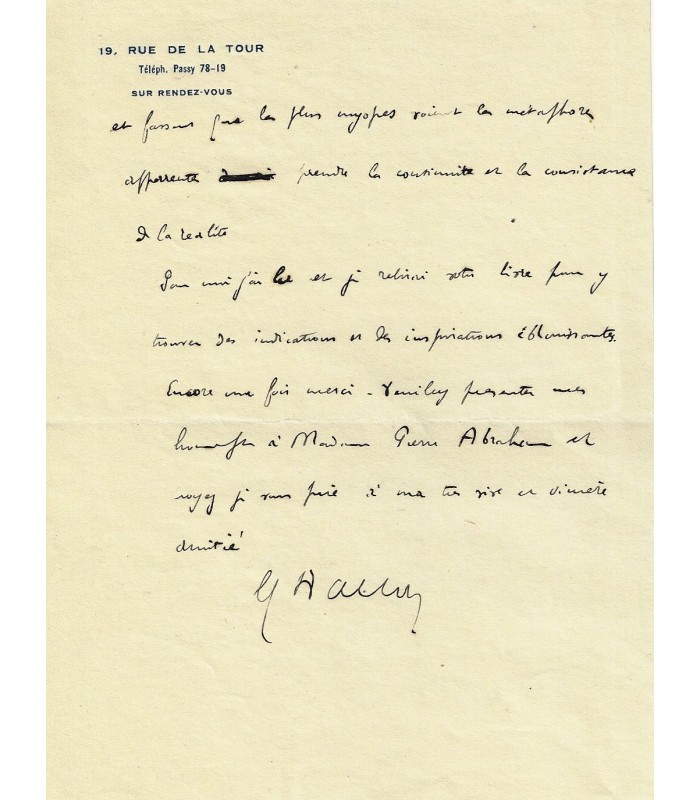 19, RUE DE LA TOUR
Téléph. Passy 78-19
SUR RENDEZ-VOUS
et fassent que les plus myopes voient les métaphores
apparentes prendre la continuité et la consistance
de la réalité
Pour moi j'ai lu et je relirai votre livre pour y
trouver des indications et des inspirations éblouissantes.
Encore une fois merci - Veuillez présenter mes
hommages à Madame Pierre Abraham et
croyez je vous prie à ma très vive et sincère
amitié